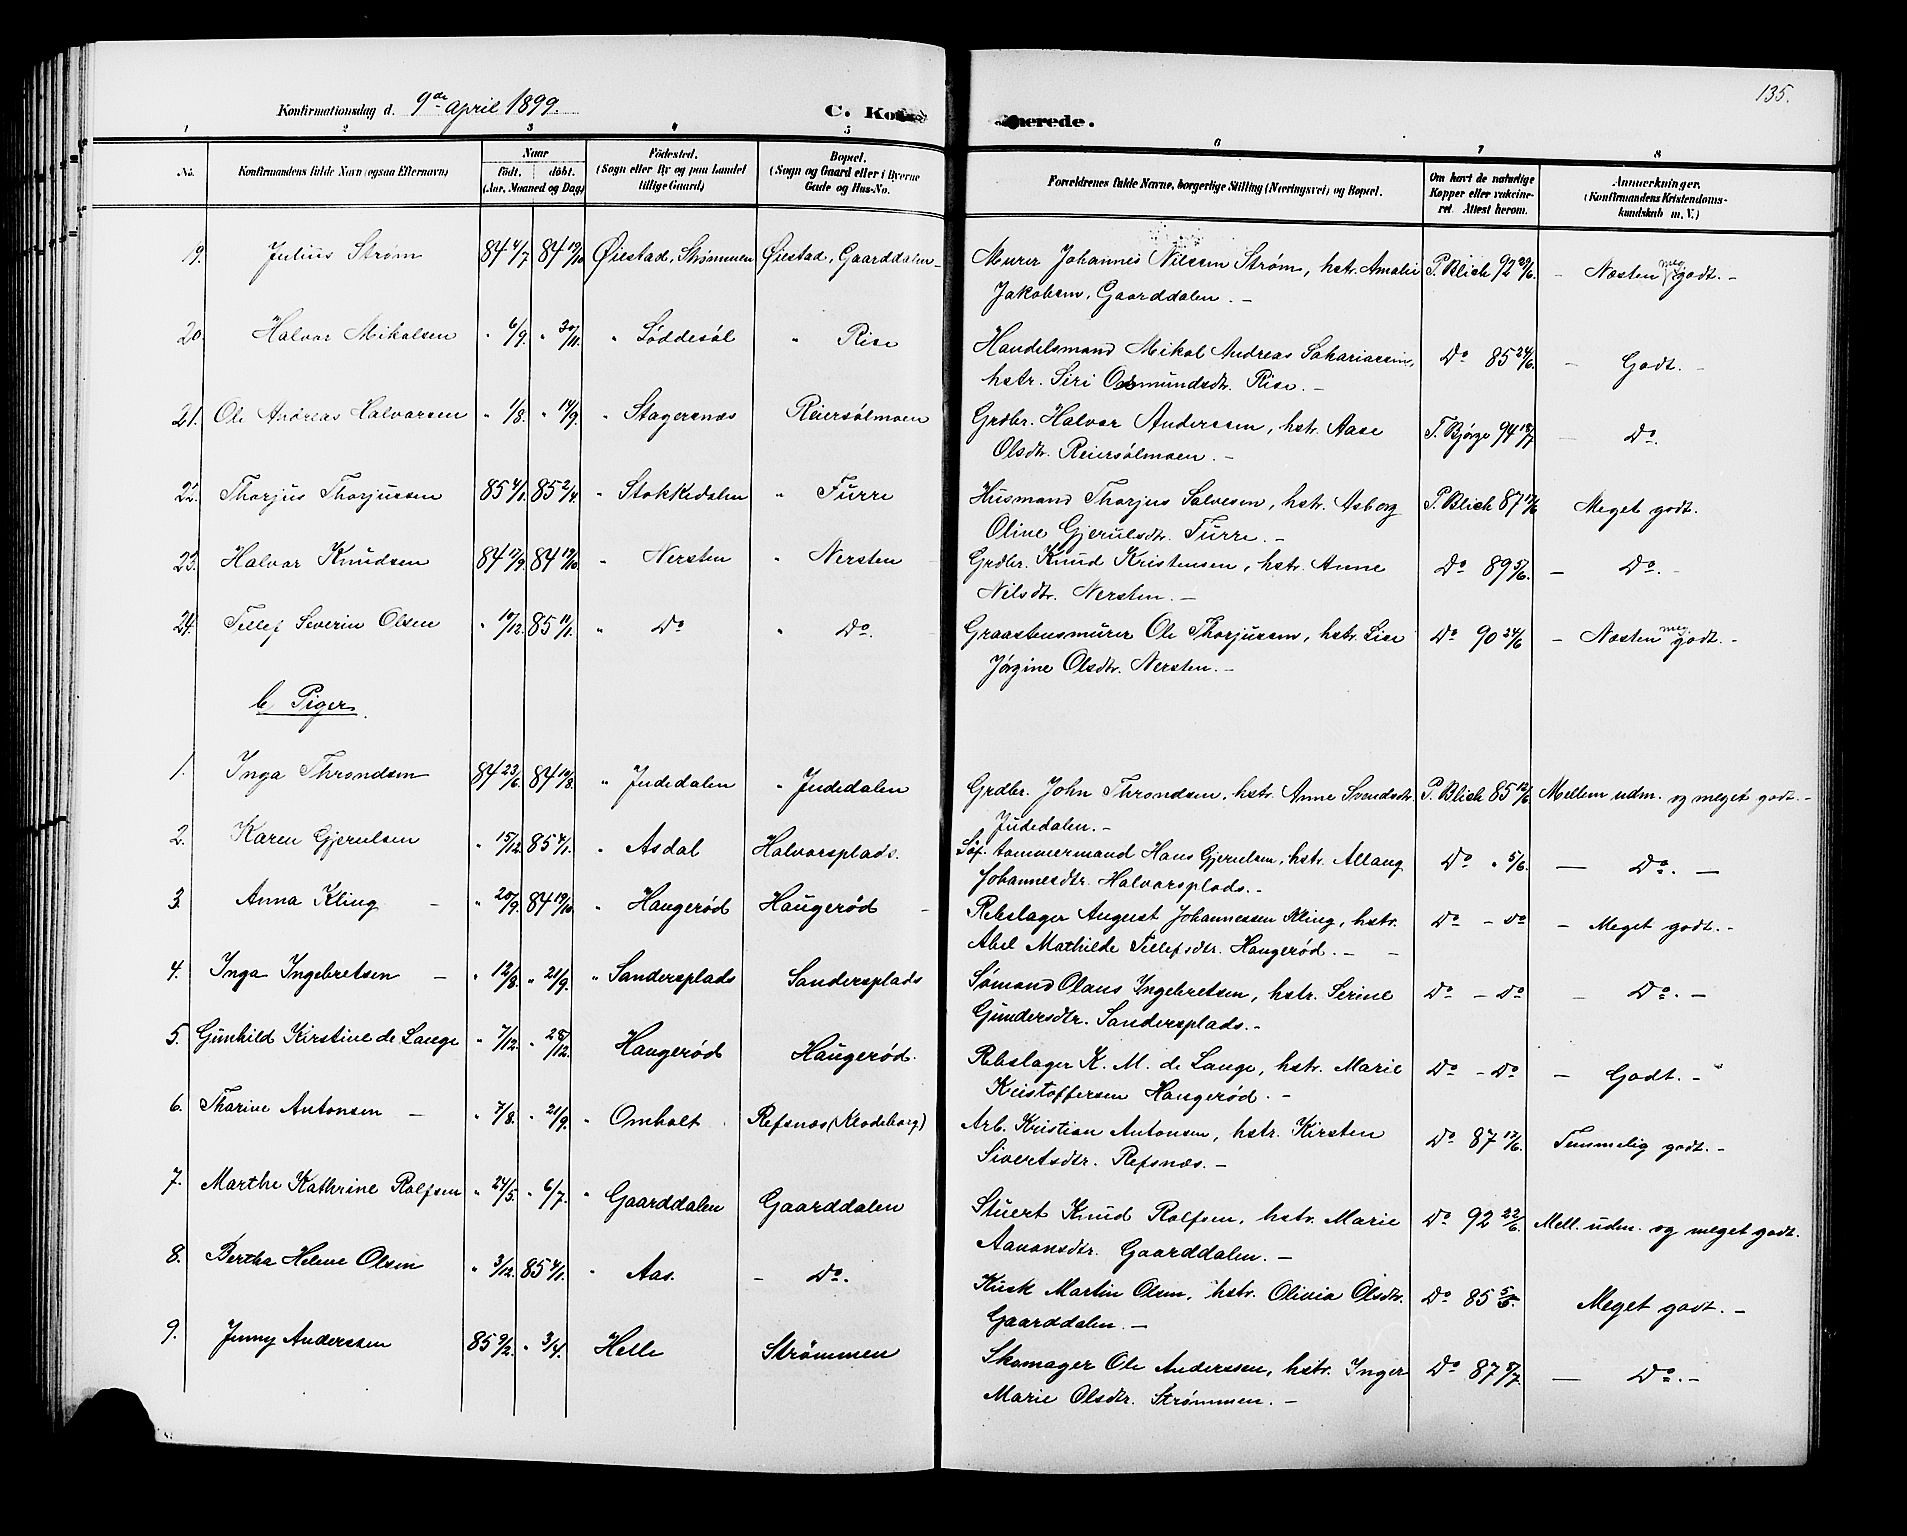 135.
Konfirmationsdag d. 9de April 1899. C. Kon merede.
1 2 3 4 5 6 7 8
No. Konfirmandens fulde Navn (ogsaa Efternavn) Naar født. døbt. (Aar, Maaned og Dag) Fødested. (Sogn eller By og paa Landet tillige Gaard) Bopæl. (Sogn og Gaard eller i Byerne Gade og Hus-No. Forældrenes fulde Navne, borgerlige Stilling (Næringsvei) og Bopæl. Om havt de naturlige Kopper eller vaccineret. Attest herom. Anmerkninger. (Konfirmandens Kristendomskundskab m. V.)
19. Julius Strøm 84 4/7 84 19/10 Øiestad, Strømmen Øiestad, Gaarddalen - Murer Johannes Nilssen Strøm, hstr. Amalie P. Blich 92 29/6. - Næsten meg. godt. -
Jakobsen, Gaarddalen. -
20. Halvor Mikalsen " 6/9. " 30/11. " Løddesøl " Rise Handelsmand Mikal Andreas Sakariassen, Do 85 24/6. - Godt. -
hstr. Siri Osmundsdtr. Rise. -
21. Ole Andreas Halvorsen " 1/8. " 14/9. " Stagersnæs Reiersølmoen Grdbr. Halvor Anderssen, hstr. Aase T. Bjorge 94 18/7 - Do.
Olsdtr. Reiersølmoen. -
22. Thorjus Thorjussen 85 4/1. 85 2/4 " Stokkedalen " Furre Husmand Thorjus Salvesen, hstr. Asborg P. Blich 87 17/6 Meget godt.
Oline Gjerulsdtr. Furre. -
23. Halvor Knudsen 84 17/9. 84 19/10 " Nersten " Nersten Grdbr. Knud Kristensen, hstr. Anne Do 89 5/6. - Do. -
Nilsdtr. Nersten. -
24. Tellef Severin Olsen " 10/12. 85 11/1. " Do " Do. Graastensmurer Ole Thorjussen, hstr. Lise Do 90 24/6 - Næsten meg. godt. -
Jørgine Olsdtr. Nersten. -
b Piger.
1. Inga Throndsen 84 23/6. 84 10/8. " Judedalen " Judedalen Grdbr. John Throndsen, hstr. Anne Svendsdtr. P. Blich 85 12/6 Mellem udm. og meget godt. -
Judedalen. -
2. Karen Gjerulsen " 15/12. 85 4/1. " Asdal Halvorsplads. Søf. tømmermand Hans Gjerulsen, hstr. Allaug Do " 5/6. - Do. -
Johannesdtr. Halvorsplads. -
3. Anna Kling - " 20/9. 84 19/10 " Haugerød Haugerød - Rebslager August Johannessen Kling, hstr. Do - do - Meget godt. -
Abel Mathilde Tellefsdtr. Haugerød. - -
4. Inga Ingebretsen - " 12/8. " 21/9. " Sandersplads Sandersplads Sømand Olaus Ingebretsen, hstr. Serine Do - Do - Do. -
Gundersdtr. Sandersplads. -
5. Gunhild Kirstine de Lange " 7/12. " 28/12. Haugerød Haugerød. Rebslager K. M. de Lange, hstr. Marie Do - Do - Godt. -
Kristoffersen Haugerød. -
6. Tharine Antonsen - " 7/8. " 21/9. " Omholt Refsnæs (Klodeborg) Arb. Kristian Antonsen, hstr. Kirsten Do 87 17/6. Temmelig godt. -
Sivertsdtr. Refsnæs. -
7. Marthe Kathrine Rolfsen " 24/5. " 6/7. " Gaarddalen Gaarddalen Stuert Knud Rolfsen, hstr. Marie Do 92 22/6. Mell. udm. og meget godt.
Aanonsdtr. Gaarddalen. -
8. Bertha Helene Olsen " 3/12. 85 4/1. " Aas. - Do. Kusk Martin Olsen, hstr. Olivia Olsdtr. Do 85 Meget godt. -
Gaarddalen. -
9. Jenny Anderssen 85 9/2. " 3/4. Helle Strømmen Skomager Ole Anderssen, hstr. Inger Do 87 - Do. -
Marie Olsdtr. Strømmen. -